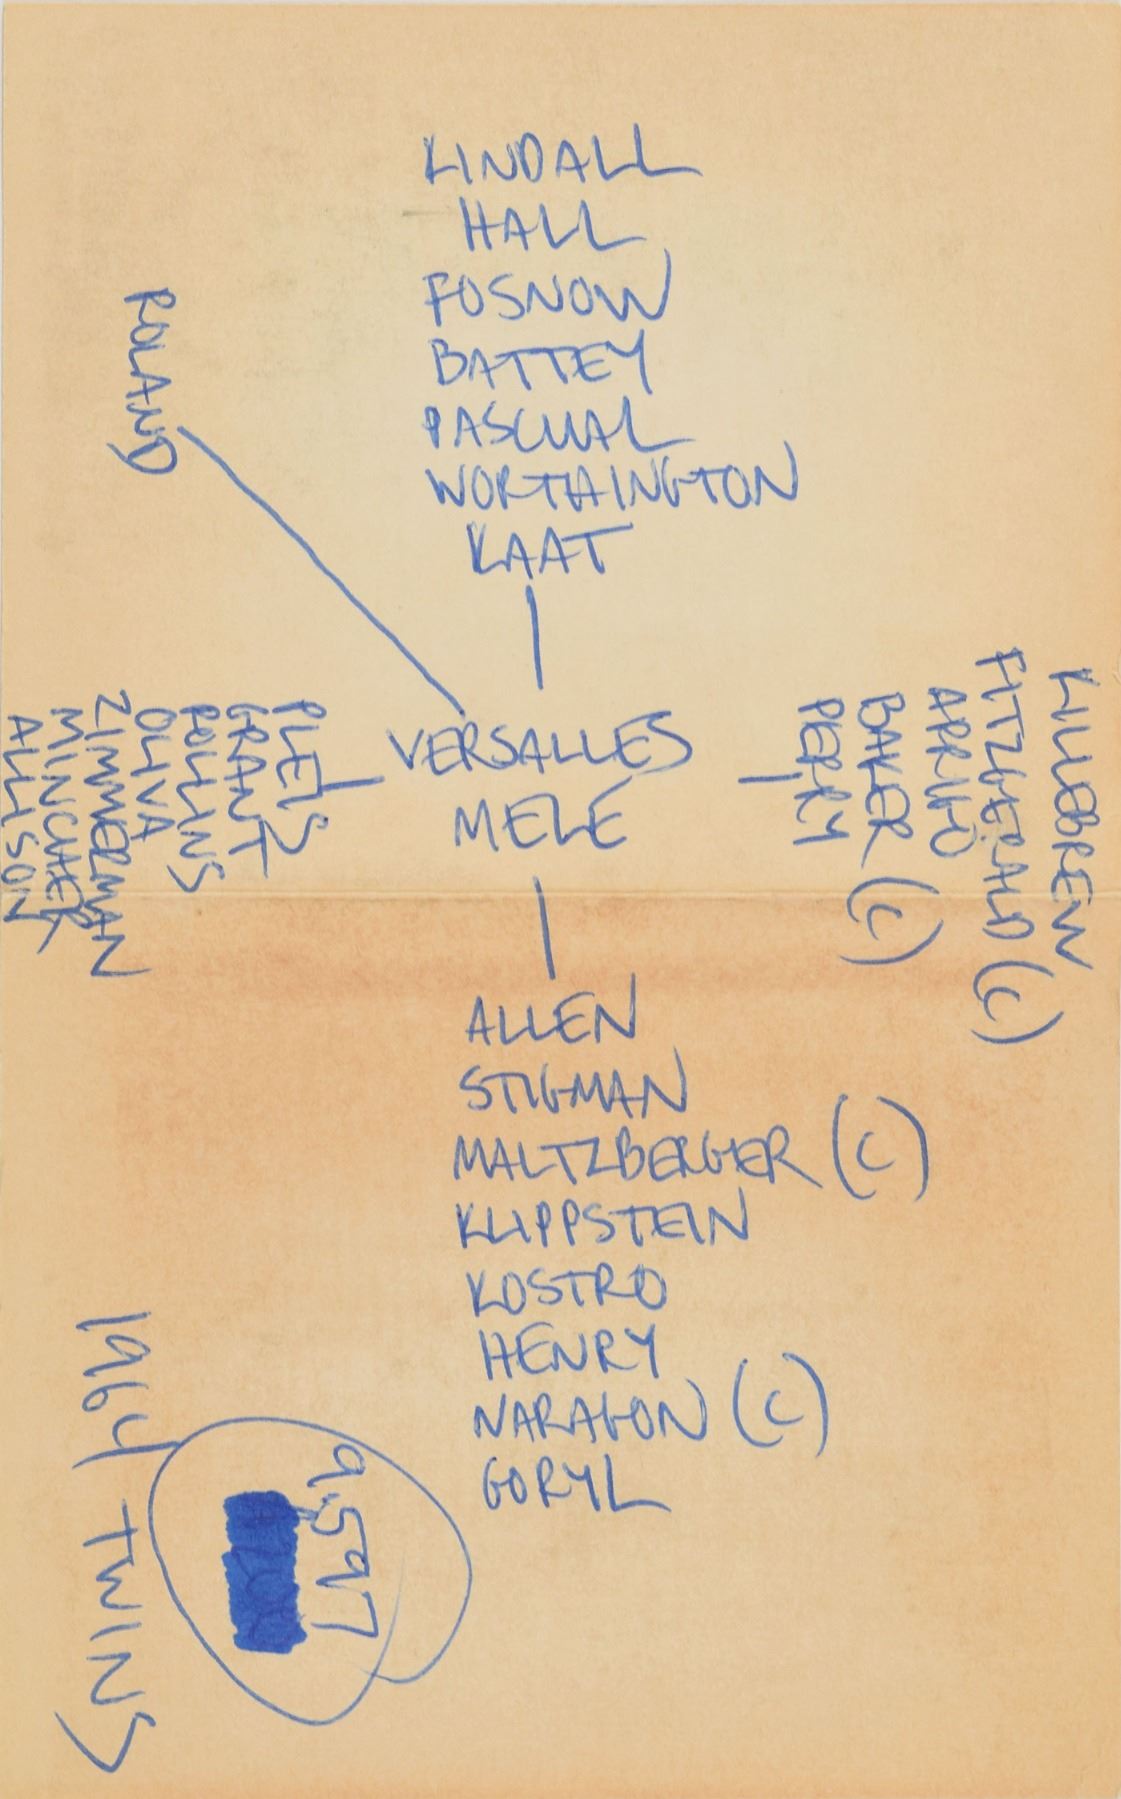 KINDALL
HALL
FOSNOW
BATTEY
PASCUAL
WORTHINGTON
KAAT
ROLAND
VERSALLES
MELE
PLEIS
GRANT
ROLLINS
OLIVA
ZIMMERMAN
MINCHER
ALLISON
KILLEBREW
FITZGERALD (C)
ARRIGO
BAKER (C)
PERRY
ALLEN
STIGMAN
MALTZBERGER (C)
KLIPPSTEIN
KOSTRO
HENRY
NARAGON (C)
GORYL
9.597
1964 TWINS